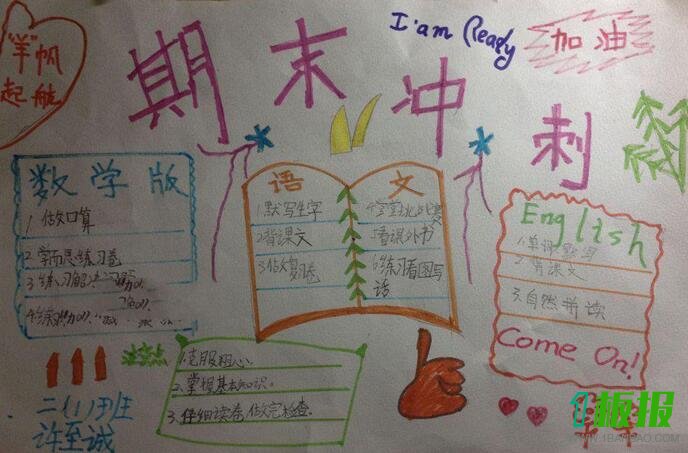 "羊"帆
起航
I am Ready
加油
期末冲刺
数学版
1 做口算
2 学而思练习卷
语文
1默写生字
2背课文
3做复习卷
5看课外书
6练习看图写
话
English
1单词默写
2背课文
3.自然拼读
Come On!
1.克服粗心.
2.掌握基本知识.
3.仔细读卷,做完检查.
二(1)班
许至诚
板报
WWW.1BANBAO.COM